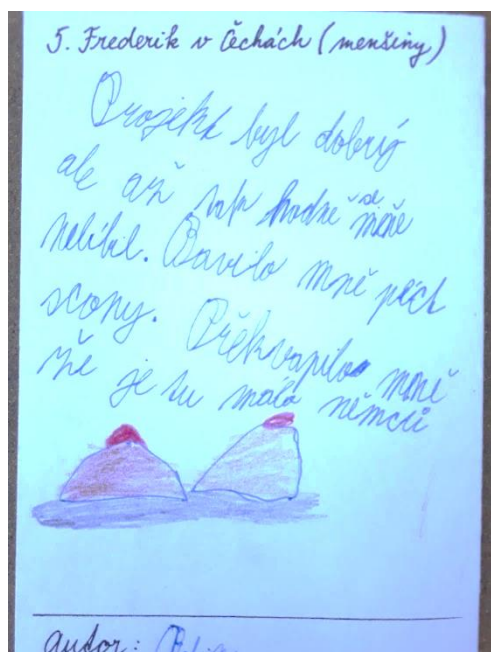 5. Frederik v Čechách (menšiny)
Projekt byl dobrý
ale až tak hodně se mně
nelíbil. Bavilo mně péct
scony. Překvapilo mně
že je tu málo němců
autor: